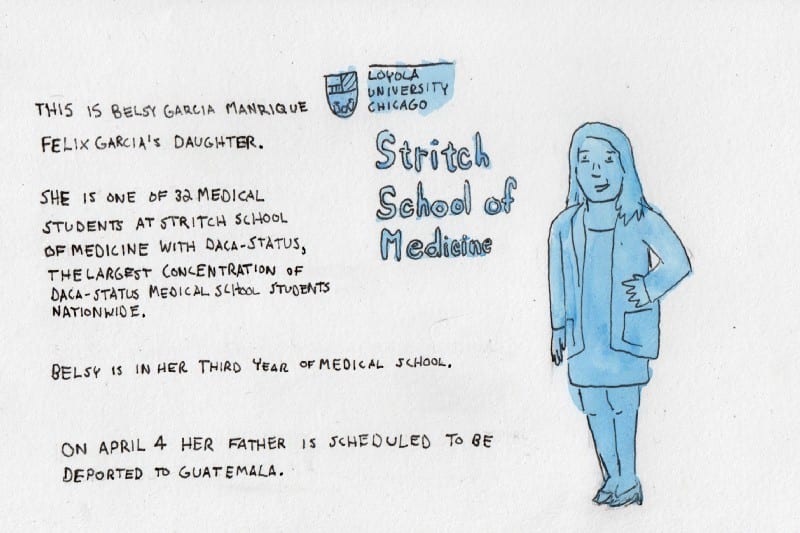 THIS IS BELSY GARCIA MANRIQUE
FELIX GARCIA'S DAUGHTER.
LOYOLA
UNIVERSITY
CHICAGO
Stritch
School of
Medicine
SHE IS ONE OF 32 MEDICAL
STUDENTS AT STRITCH SCHOOL
OF MEDICINE WITH DACA-STATUS,
THE LARGEST CONCENTRATION OF
DACA-STATUS MEDICAL SCHOOL STUDENTS
NATIONWIDE.
BELSY IS IN HER THIRD YEAR OF MEDICAL SCHOOL.
ON APRIL 4 HER FATHER IS SCHEDULED TO BE
DEPORTED TO GUATEMALA.